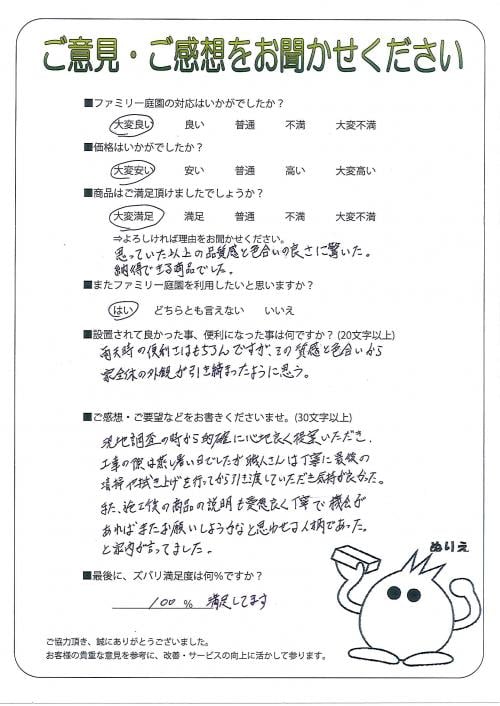 ご意見・ご感想をお聞かせください
■ファミリー庭園の対応はいかがでしたか？
大変良い 良い 普通 不満 大変不満
■価格はいかがでしたか？
大変安い 安い 普通 高い 大変高い
■商品はご満足頂けましたでしょうか？
大変満足 満足 普通 不満 大変不満
⇒よろしければ理由をお聞かせください。
思っていた以上の品質感と色合いの良さに驚いた。
納得できる商品でした。
■またファミリー庭園を利用したいと思いますか？
はい どちらとも言えない いいえ
■設置されて良かった事、便利になった事は何ですか？(20文字以上)
雨天時の便利さはもちろんですが、その質感と色合いから
家全体の外観が引き締まったように思う。
■ご感想・ご要望などをお書きくださいませ。(30文字以上)
現地調査の時から的確に心地良く提案いただき、
工事の際は蒸し暑い日でしたが職人さんは丁寧に最後の
清掃や拭き上げを行ってから引き渡していただき気持が良かった。
また、施工後の商品の説明も愛想良く丁寧で機会が
あればまたお願いしようかなと思わせる人柄であった。
と家内が言ってました。
ぬりえ
■最後に、ズバリ満足度は何％ですか？
100 % 満足してます
ご協力頂き、誠にありがとうございました。
お客様の貴重な意見を参考に、改善・サービスの向上に活かして参ります。